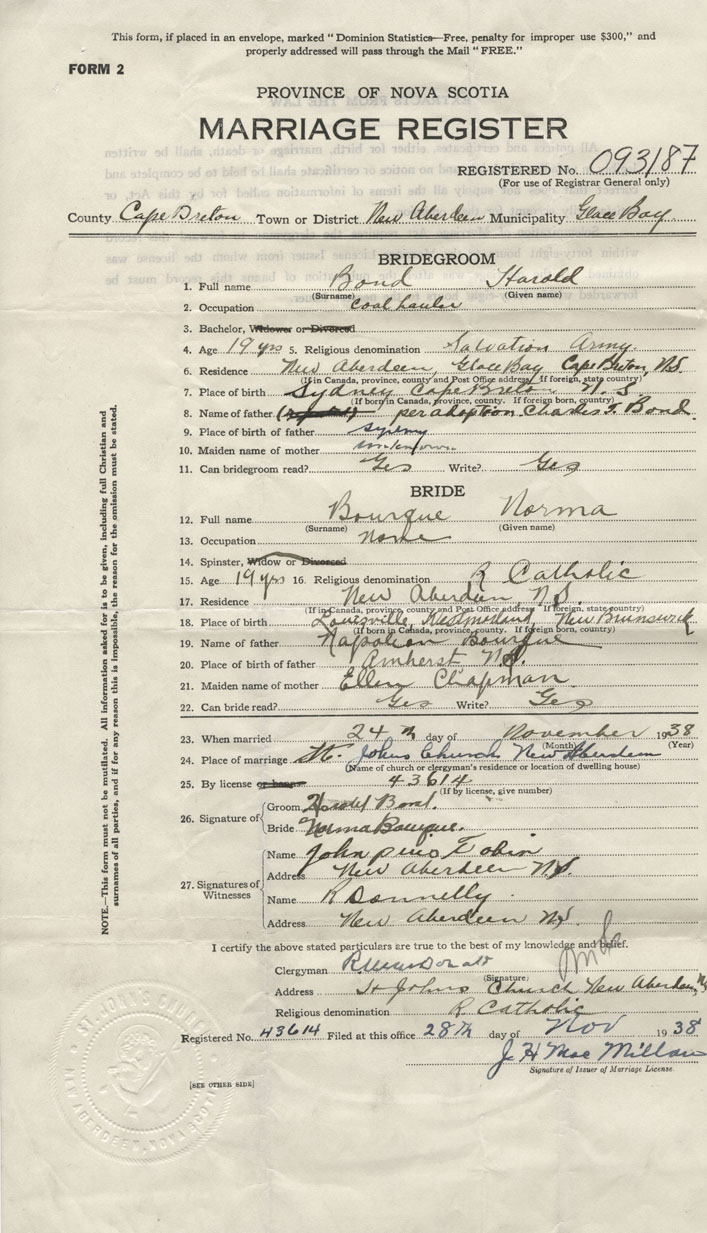 This form, if placed in an envelope, marked "Dominion Statistics—Free, penalty for improper use $300," and
properly addressed will pass through the Mail "FREE."
FORM 2
PROVINCE OF NOVA SCOTIA
MARRIAGE REGISTER
REGISTERED No. 093187
(For use of Registrar General only)
County Cape Breton Town or District New Aberdeen Municipality Glace Bay
BRIDEGROOM
1. Full name Bond Harold
(Surname) (Given name)
2. Occupation Coal hauler
3. Bachelor, Widower or Divorced
4. Age 19 yrs 5. Religious denomination Salvation Army
6. Residence New Aberdeen, Glace Bay Cape Breton, N.S.
(If in Canada, province, county and Post Office address. If foreign, state country)
7. Place of birth Sydney Cape Breton N.S
(If born in Canada, province, county. If foreign born, country)
8. Name of father per adoption Charles F. Bond
9. Place of father Sydney
10. Maiden name of mother unknown
11. Can bridegroom read? Yes Write? Yes
BRIDE
12. Full name Bourque Norma
(Surname) (Given name)
13. Occupation None
14. Spinster, Widow or Divorced
15. Age 19 yrs 16. Religious denomination R Catholic
17. Residence New Aberdeen N.S.
(If in Canada, province, county and Post Office address If foreign, state country)
18. Place of birth Westmorland, New Brunswick
(If born in Canada, province, county. If foreign born, country)
19. Name of father Napoleon Bourque
20. Place of birth of father Amherst N.S.
21. Maiden name of mother Ellen Chapman
22. Can bride read? Yes Write? Yes
23. When married 24th day of November 1938
(Month) (Year)
24. Place of marriage St. Johns Church New Aberdeen
(Name of church or clergyman's residence or location of dwelling house)
25. By license or banns 43614
(If by license, give number)
26. Signature of
Groom Harold Bond.
Bride Norma Bourque.
27. Signatures of Witnesses
Name John pius Tobin
Address New Aberdeen N.S.
Name R Donnelly
Address New Aberdeen N.S
I certify the above stated particulars are true to the best of my knowledge and belief.
Clergyman
(Signature)
Address St Johns Church New Aberdeen, N.S
Religious denomination R Catholic
Registered No. 43614 Filed at this office 28th day of Nov 1938
J. H Mac Millan
Signature of Issuer of Marriage License.
[SEE OTHER SIDE]
NOTE.—This form must not be mutilated. All information asked for is to be given, including full Christian and
surnames of all parties, and if for any reason this is impossible, the reason for the omission must be stated.